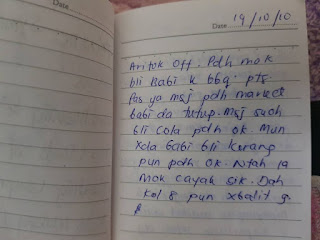 Date
Date 19/10/10
Aritok Off. Pdh mok
bli Babi k bbq. ptg
Pas ya msj pdh market
babi da tutup. Msj suoh
bli Cola pdh ok. Mun
Xda babi bli kurang
pun pdh Ok. Ntah ia
mok cayak sik. Dah
kol 8 pun xbalit g.